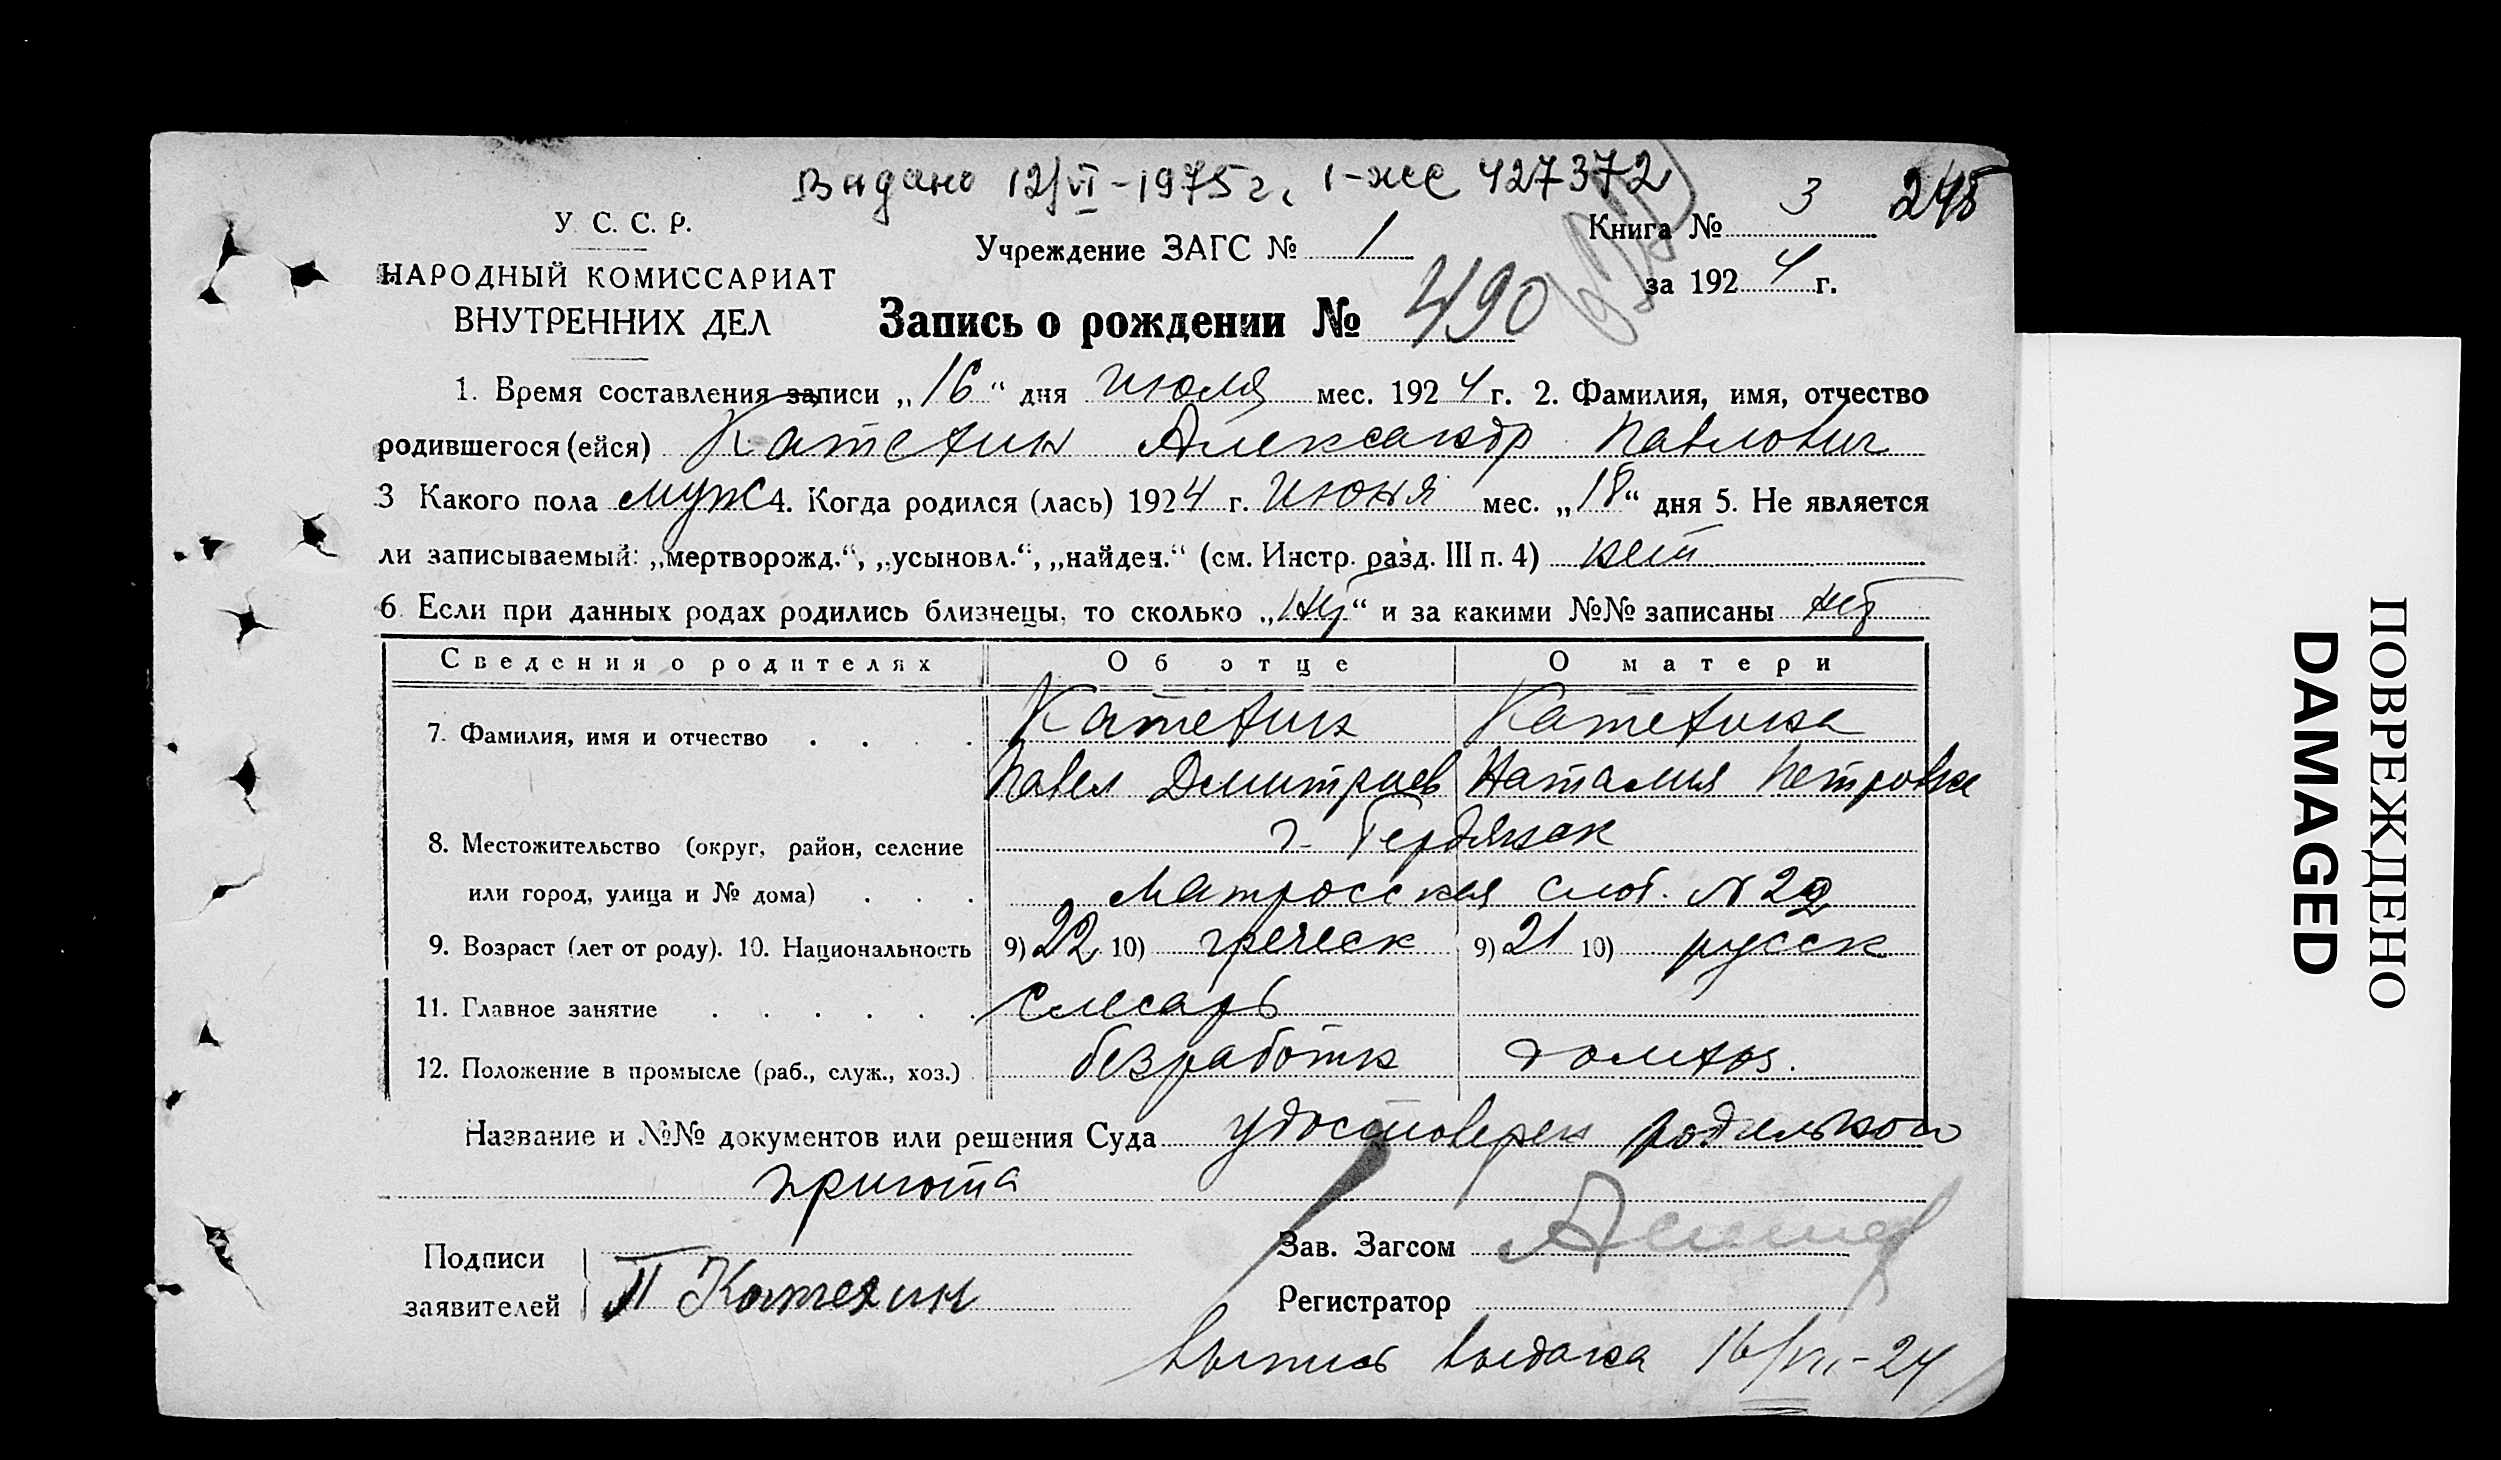 Видано 12/VI-1975 г. I-жс 427372
248
У. С. С. Р.
НАРОДНЫЙ КОМИССАРИАТ
ВНУТРЕННИХ ДЕЛ
Учреждение ЗАГС № 1
Книга № 3
за 1924 г.
Запись о рождении № 490
1. Время составления записи „16“ дня июля мес. 1924 г. 2. Фамилия, имя, отчество
родившегося (ейся) Катехин Александр Павлович
3 Какого пола муж 4. Когда родился (лась) 1924 г. июня мес. „18“ дня 5. Не является
ли записываемый: „мертворожд.“, „усыновл.“, „найден.“ (см. Инстр. разд. III п. 4) нет
6. Если при данных родах родились близнецы, то сколько „нет“ и за какими №№ записаны нет
Сведения о родителях Об отце О матери
7. Фамилия, имя и отчество . . . . Катехин Катехина
Павел Дмитриев Наталия Петровна
8. Местожительство (округ, район, селение г. Бердянск
или город, улица и № дома) . . . Матросская слоб. N 22
9. Возраст (лет от роду). 10. Национальность 9) 22 10) греческ 9) 21 10) русск
11. Главное занятие . . . . . . слесарь
12. Положение в промысле (раб., служ., хоз.) безработн домхоз.
Название и №№ документов или решения Суда удостоверен родильного
приюта
Подписи заявителей П Катехин
Зав. Загсом
Регистратор
выпись выдана 16/VII-24
ПОВРЕЖДЕНО
DAMAGED